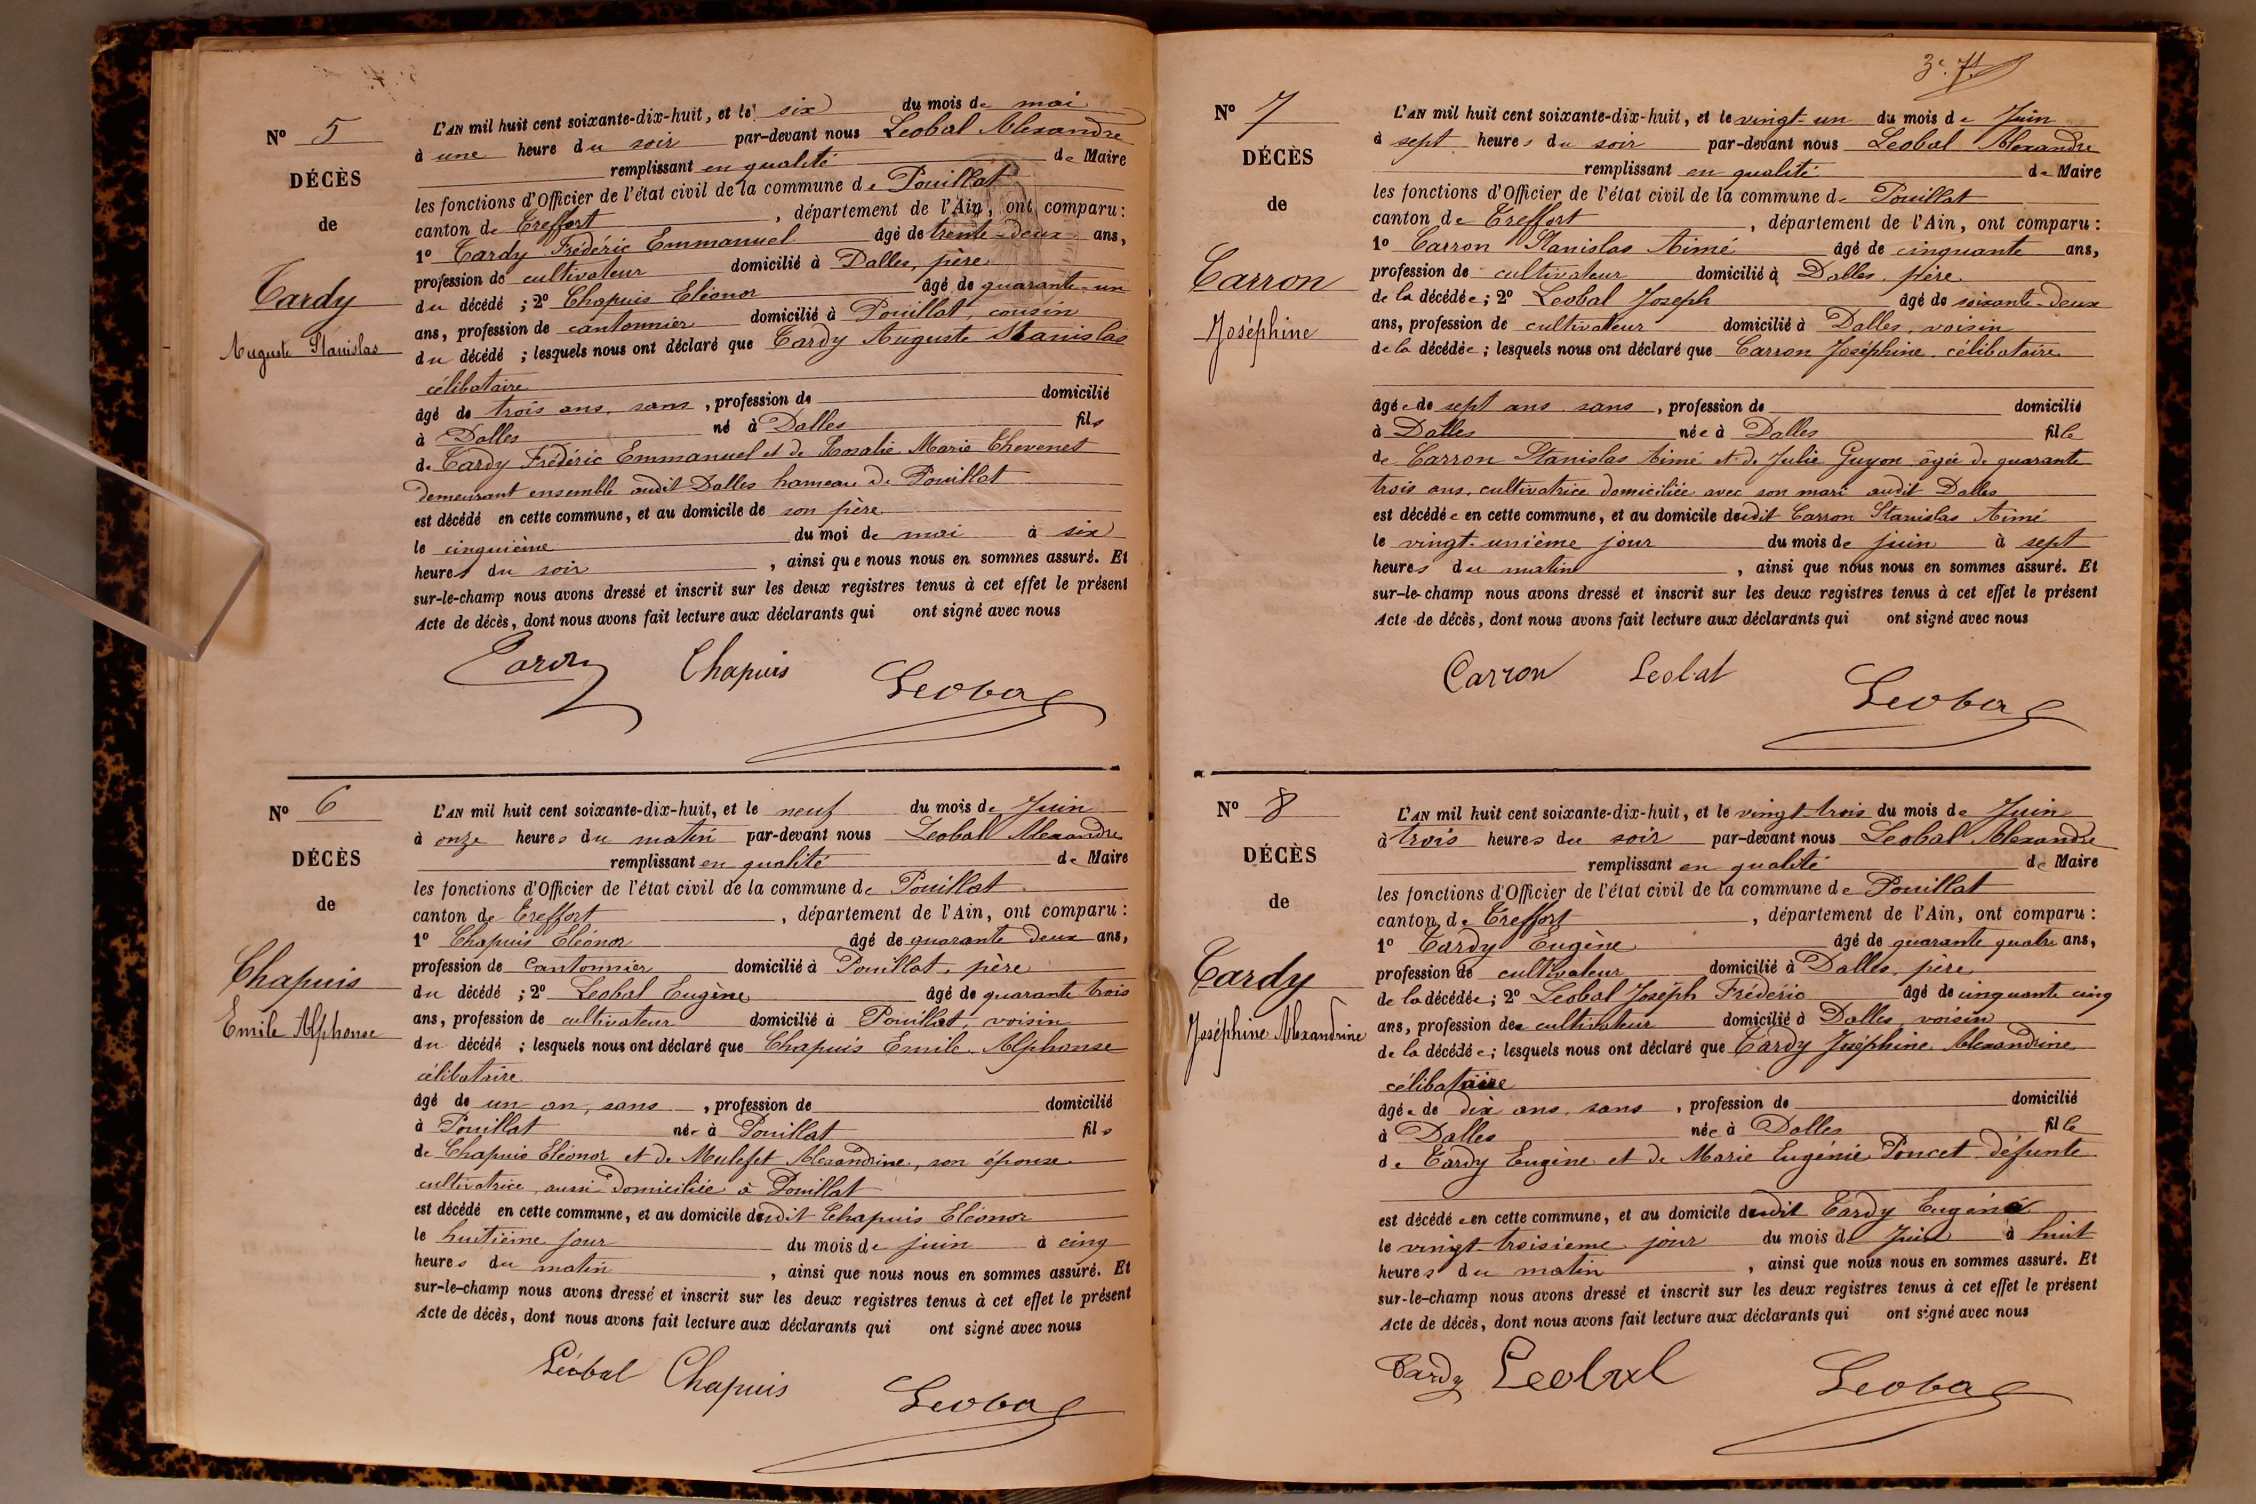 Nº 5
DÉCÈS
de
Tardy
Auguste Stanislas
L'AN mil huit cent soixante-dix-huit, et le six du mois de mai
à une heure du soir par-devant nous Leobal Alexandre
remplissant en qualité de Maire
les fonctions d'Officier de l'état civil de la commune de Pouillat
canton de Treffort, département de l'Ain, ont comparu :
1º Tardy Frédéric Emmanuel âgé de trente-deux ans,
profession de cultivateur domicilié à Dalles, père
du décédé ; 2º Chapuis Eléonor âgé de quarante-un
ans, profession de cantonnier domicilié à Pouillat, cousin
du décédé ; lesquels nous ont déclaré que Tardy Auguste Stanislas
célibataire
âgé de trois ans, sans, profession de domicilié
à Dalles né à Dalles fils
de Tardy Frédéric Emmanuel et de Rosalie Marie Chevenet
demeurant ensemble audit Dalles hameau de Pouillat
est décédé en cette commune, et au domicile de son père
le cinquième du moi de mai à six
heures du soir, ainsi que nous nous en sommes assuré. Et
sur-le-champ nous avons dressé et inscrit sur les deux registres tenus à cet effet le présent
Acte de décès, dont nous avons fait lecture aux déclarants qui ont signé avec nous
Tardy Chapuis Leobal
Nº 6
DÉCÈS
de
Chapuis
Emile Alphonse
L'AN mil huit cent soixante-dix-huit, et le neuf du mois de Juin
à onze heures du matin par-devant nous Leobal Alexandre
remplissant en qualité de Maire
les fonctions d'Officier de l'état civil de la commune de Pouillat
canton de Treffort, département de l'Ain, ont comparu :
1º Chapuis Eléonor âgé de quarante deux ans,
profession de cantonnier domicilié à Pouillat, père
du décédé ; 2º Leobal Eugène âgé de quarante trois
ans, profession de cultivateur domicilié à Pouillat, voisin
du décédé ; lesquels nous ont déclaré que Chapuis Emile Alphonse
célibataire
âgé de un an, sans, profession de domicilié
à Pouillat né à Pouillat fils
de Chapuis Eléonor et de Mulefet Alexandrine, son épouse
cultivatrice, aussi domiciliée à Pouillat
est décédé en cette commune, et au domicile dudit Chapuis Eléonor
le huitième jour du mois de juin à cinq
heures du matin, ainsi que nous nous en sommes assuré. Et
sur-le-champ nous avons dressé et inscrit sur les deux registres tenus à cet effet le présent
Acte de décès, dont nous avons fait lecture aux déclarants qui ont signé avec nous
Léobal Chapuis Leobal
3e. f.
Nº 7
DÉCÈS
de
Carron
Joséphine
L'AN mil huit cent soixante-dix-huit, et le vingt-un du mois de Juin
à sept heures du soir par-devant nous Leobal Alexandre
remplissant en qualité de Maire
les fonctions d'Officier de l'état civil de la commune de Pouillat
canton de Treffort, département de l'Ain, ont comparu :
1º Carron Stanislas Aimé âgé de cinquante ans,
profession de cultivateur domicilié à Dalles, père
de la décédée ; 2º Leobal Joseph âgé de soixante-deux
ans, profession de cultivateur domicilié à Dalles, voisin
de la décédée ; lesquels nous ont déclaré que Carron Joséphine, célibataire
âgée de sept ans, sans, profession de domicilié
à Dalles née à Dalles fille
de Carron Stanislas Aimé et de Julie Guyon âgée de quarante
trois ans, cultivatrice domiciliée avec son mari audit Dalles
est décédée en cette commune, et au domicile dudit Carron Stanislas Aimé
le vingt-unième jour du mois de juin à sept
heures du matin, ainsi que nous nous en sommes assuré. Et
sur-le-champ nous avons dressé et inscrit sur les deux registres tenus à cet effet le présent
Acte de décès, dont nous avons fait lecture aux déclarants qui ont signé avec nous
Carron Leobal Leobal
Nº 8
DÉCÈS
de
Tardy
Joséphine Alexandrine
L'AN mil huit cent soixante-dix-huit, et le vingt-trois du mois de Juin
à trois heures du soir par-devant nous Leobal Alexandre
remplissant en qualité de Maire
les fonctions d'Officier de l'état civil de la commune de Pouillat
canton de Treffort, département de l'Ain, ont comparu :
1º Tardy Eugène âgé de quarante quatre ans,
profession de cultivateur domicilié à Dalles, père
de la décédée ; 2º Leobal Joseph Frédéric âgé de cinquante cinq
ans, profession de cultivateur domicilié à Dalles, voisin
de la décédée ; lesquels nous ont déclaré que Tardy Joséphine Alexandrine
célibataire
âgée de dix ans, sans, profession de domicilié
à Dalles née à Dalles fille
de Tardy Eugène et de Marie Eugénie Poncet défunte
est décédée en cette commune, et au domicile dudit Tardy Eugène
le vingt-troisième jour du mois de Juin à huit
heures du matin, ainsi que nous nous en sommes assuré. Et
sur-le-champ nous avons dressé et inscrit sur les deux registres tenus à cet effet le présent
Acte de décès, dont nous avons fait lecture aux déclarants qui ont signé avec nous
Tardy Leobal Leobal